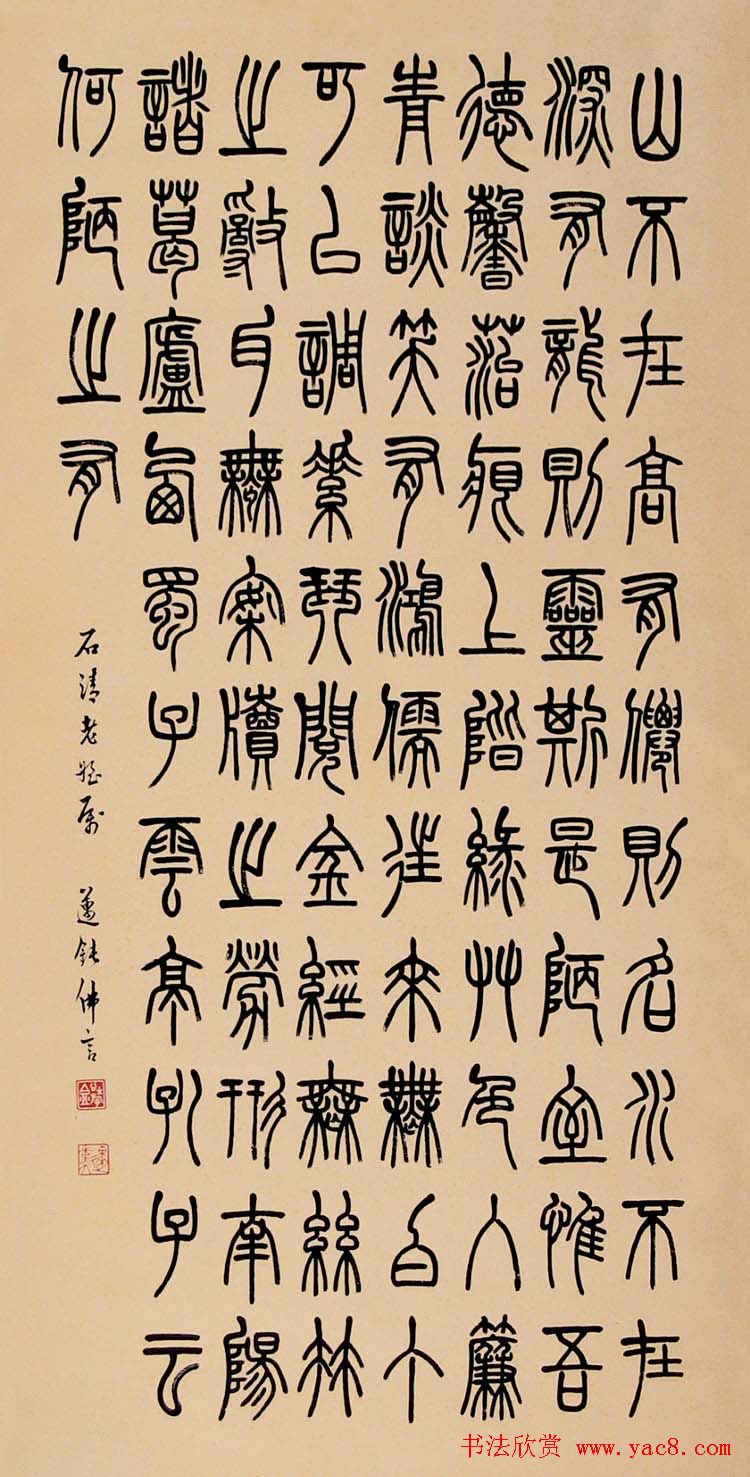 山不在高有僊則名水不在
深有龍則靈斯是陋室惟吾
德馨菭痕上階綠艸色入簾
青談笑有鴻儒往來無白丁
可以調素琴閱金經無絲竹
之亂耳無案牘之勞形南陽
諸葛廬西蜀子雲亭孔子云
何陋之有
石清老姪屬 邁鈍佛言
书法欣赏 www.yac8.com